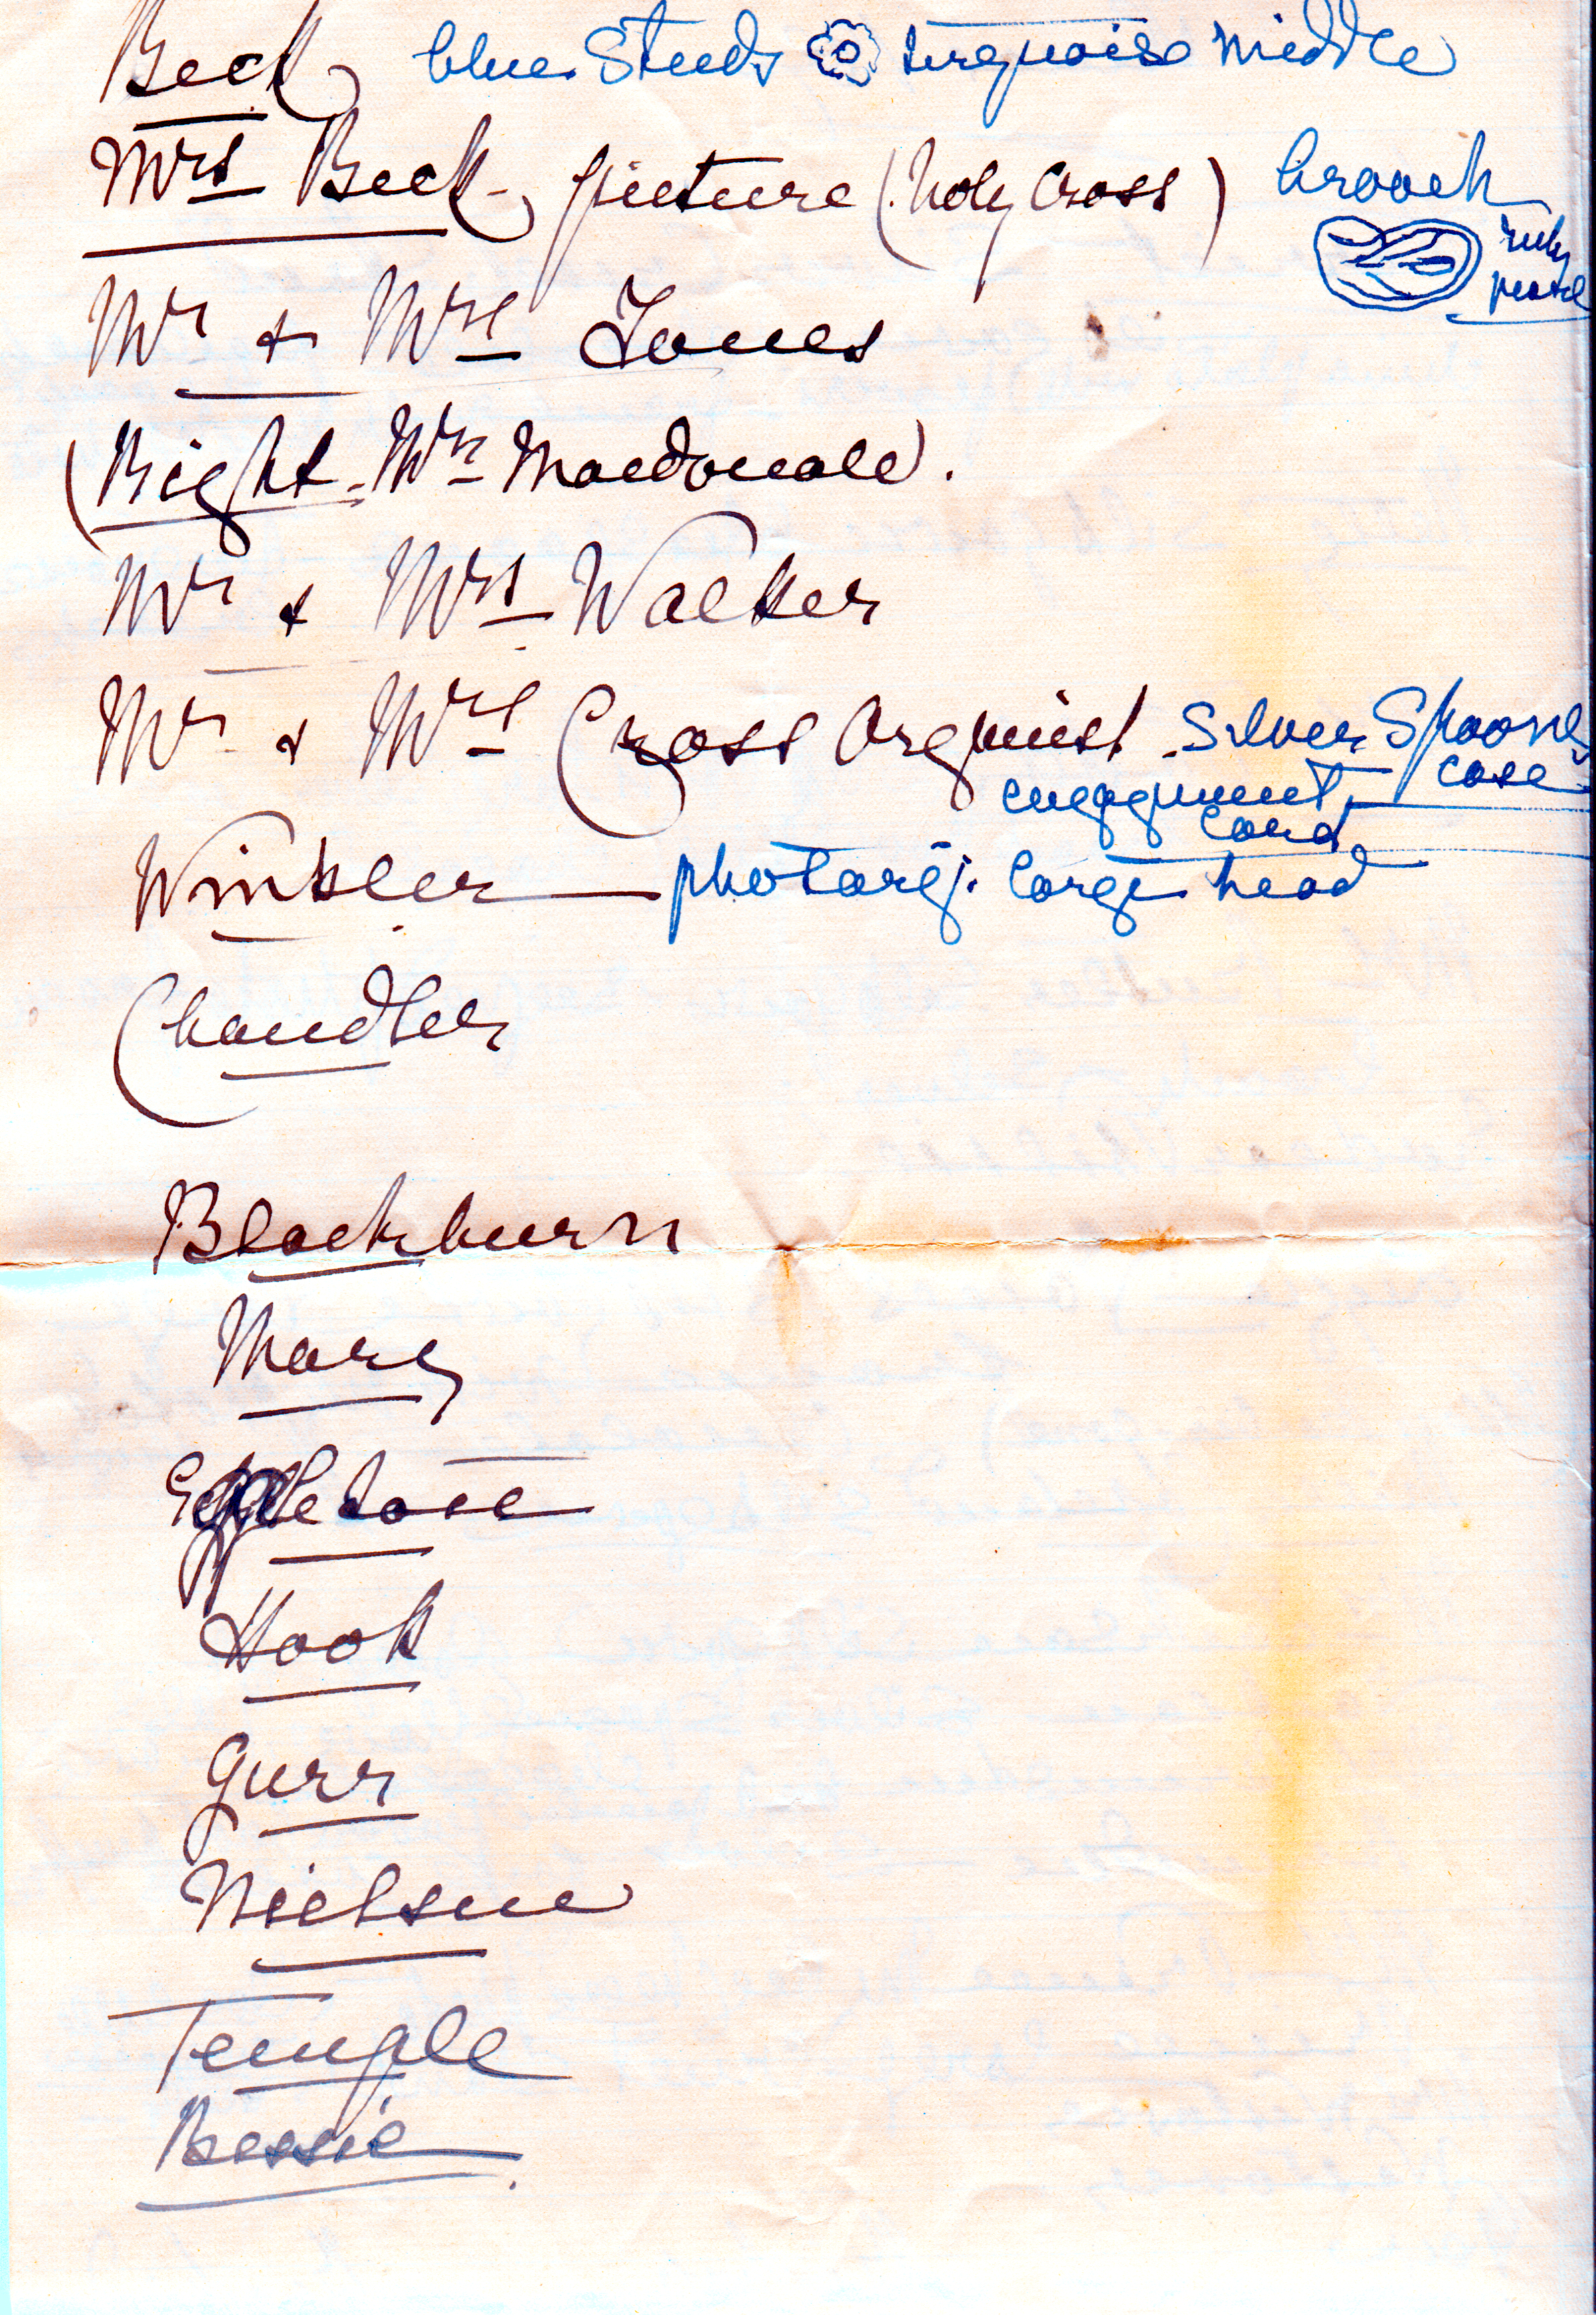 Beck blue Studs turquoise middle
Mrs Beck picture (holy Cross) brooch
ruby
pearl
Mr & Mrs Jones
(Bight - Mrs Macdonald).
Mr & Mrs Walker
Mr & Mrs Cross Organist Silver Spoons
case
engagement
card
Winkler photo large head
Chandler
Blackburn
Mary
Hook
Gurr
Nielsen
Temple
Bessie